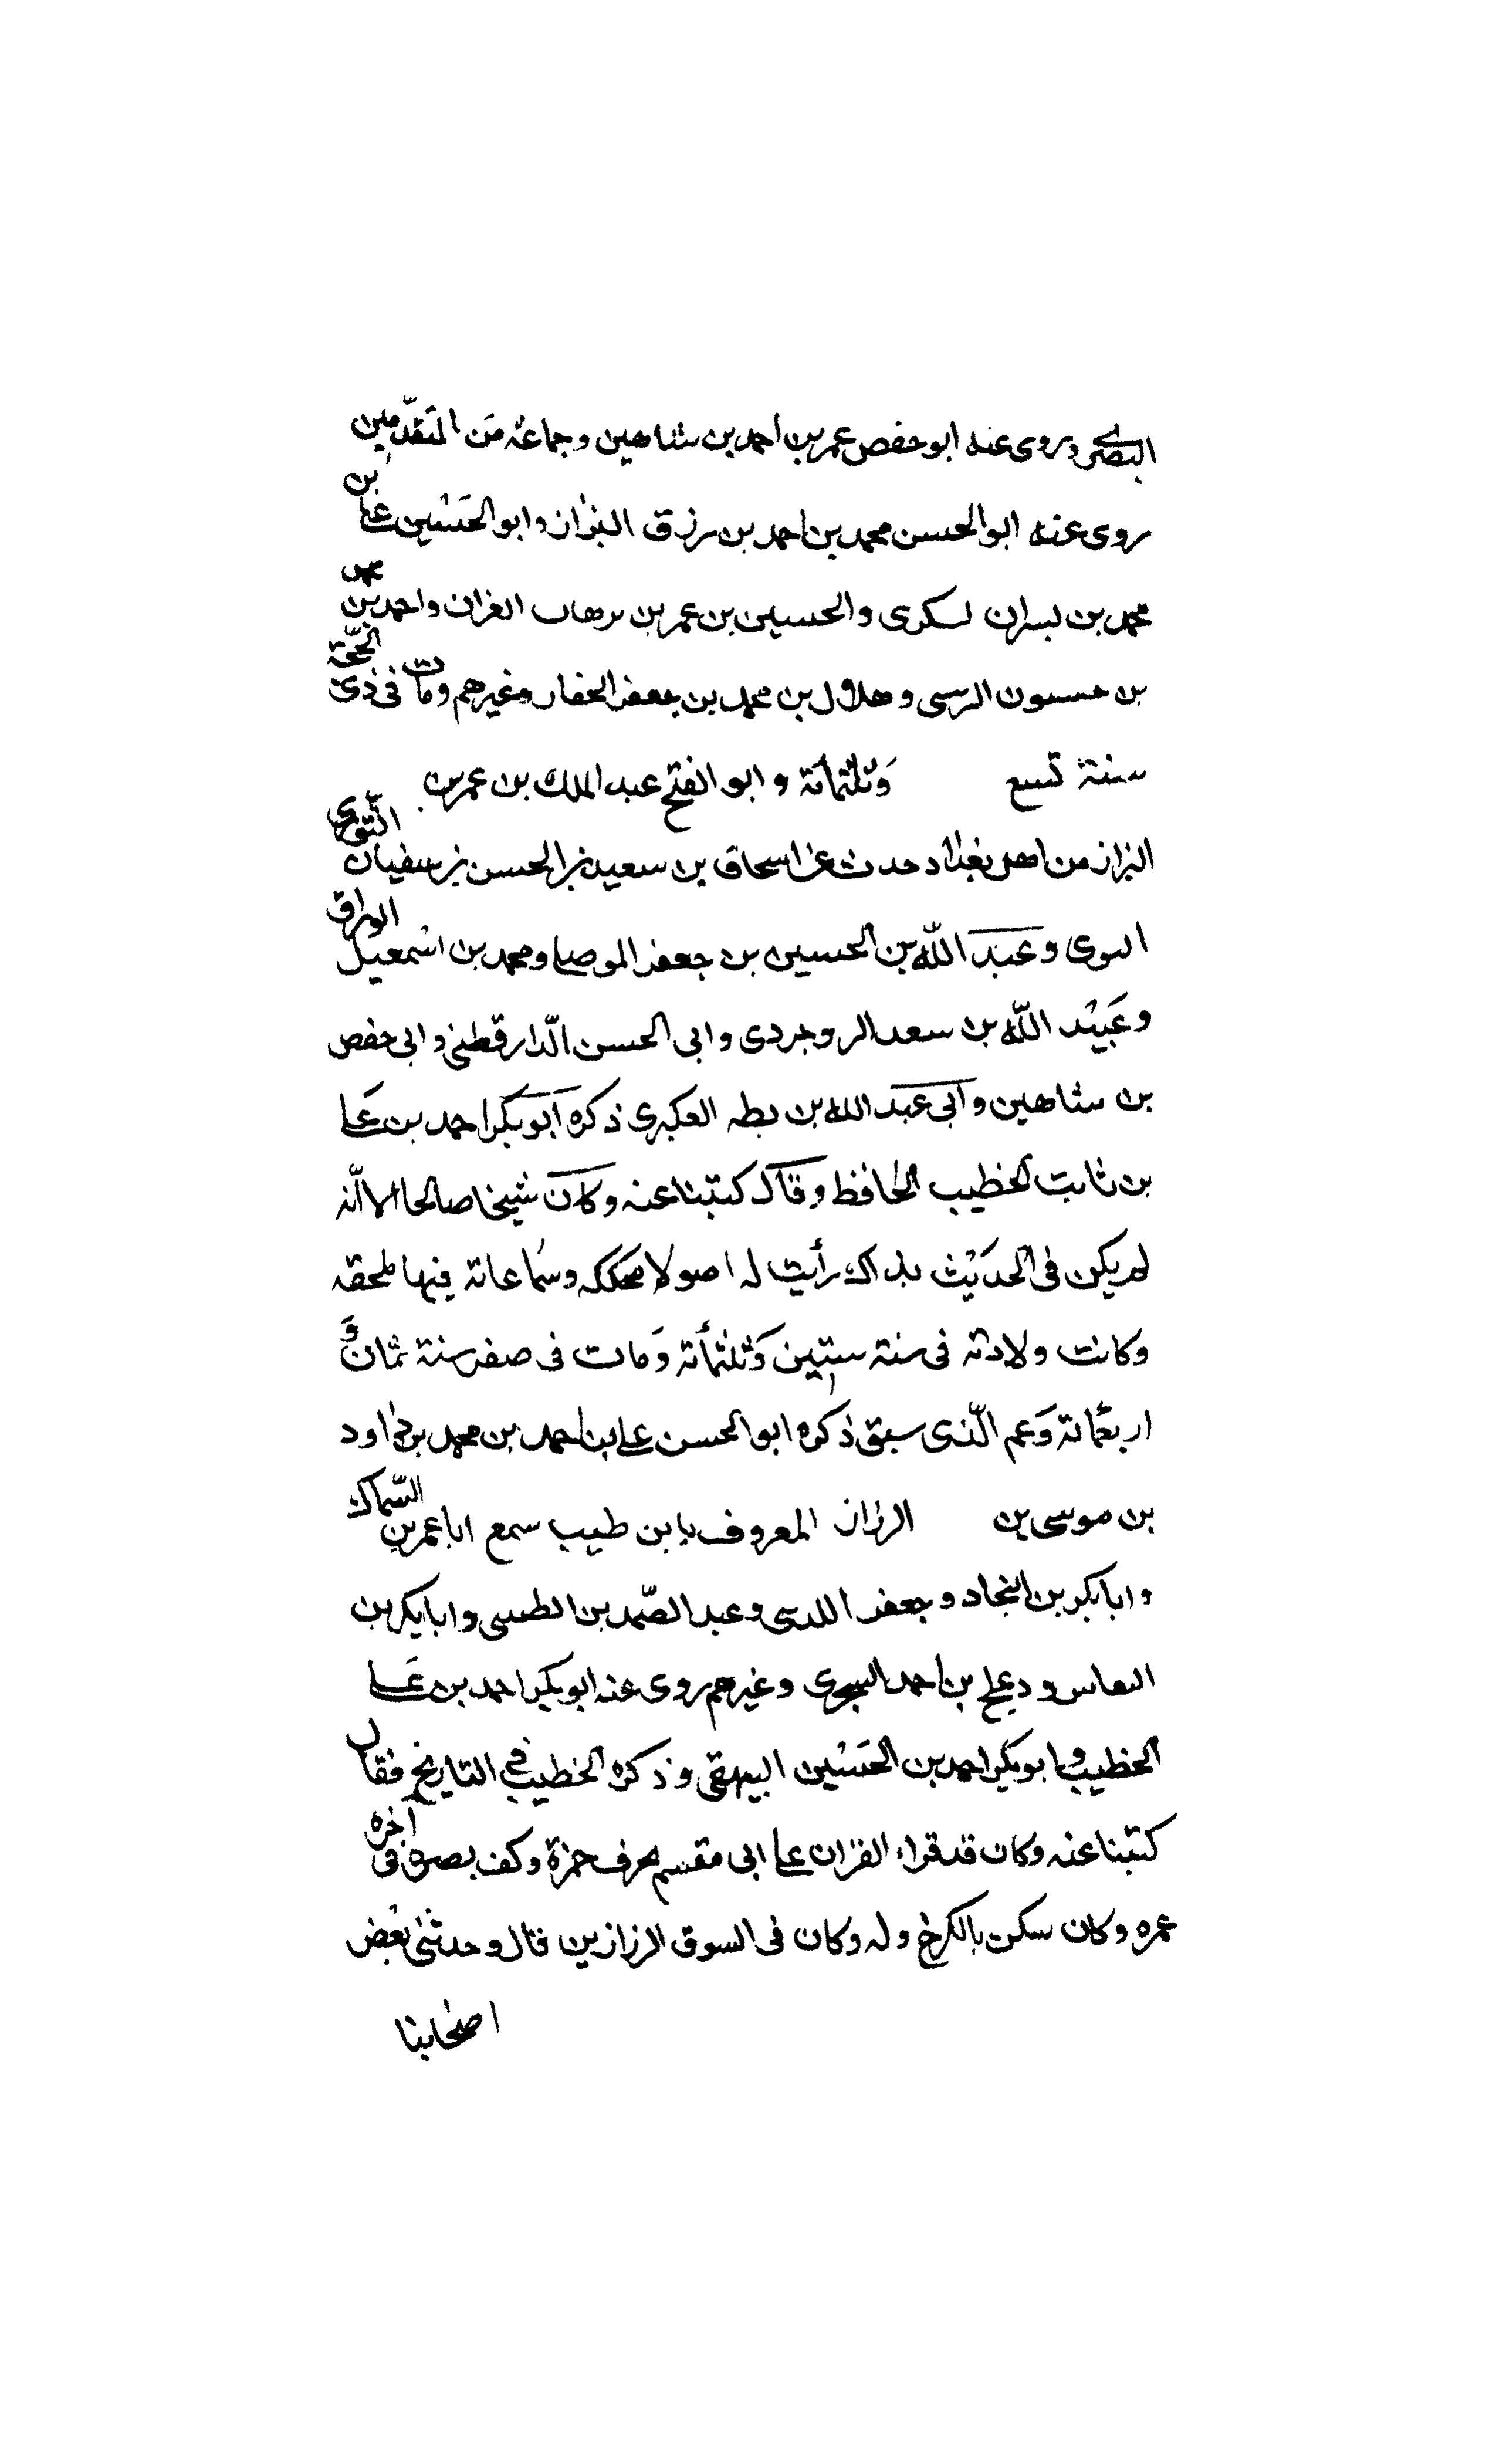 البصرى وروى عنه ابو حفص عمر بن احمد بن شاهين وجماعة من المتقدّمين
روى عنه ابو الحسن محمد بن احمد بن رزق البزاز وابو الحسين على بن
محمد بن بسران لسكرى والحسين بن عمر بن برهان الغزان واحمد بن محمد
بن حسنون الرسى وهلال بن محمد بن جعفر الحفار وغيرهم ومات فى ذى الحجّة
سنة تسع وثلثمائة وابو الفتح عبد الملك بن عمر بن
البزاز من اهل بغداد حدث عن اسحاق بن سعيد بن الحسن بن سفيان
النسوى وعبد اللّه بن الحسين بن جعفر الموصلى ومحمد بن اسمعيل الوراق
وعبيد اللّه بن سعد البروجردى وابى الحسن الدّارقطنى وابى حفص
بن شاهين وابى عبد الله بن بطه العكبرى ذكره ابو بكر احمد بن على
بن ثابت الخطيب الحافظ وقال كتبنا عنه وكان شيخا صالحا الا انّه
لم يكن فى الحديث بذاك رأيت له اصولا محككه وسماعاته فيها ملحقه
وكانت ولادته فى سنة ستين وثلثمأئة ومات فى صفر سنة ثمان و
اربعمائة وعم الّذى سبق ذكره ابو الحسن على بن احمد بن محمد بن داود
بن موسى بن الرزاز المعروف بابن طيب سمع ابا عمر بن السّماك
وابا بكر بن النجاد وجعفر الخلدى وعبد الصّمد بن الطستى وابا بكر بن
النقاش ودعلج بن احمد السجزى وغيرهم روى عنه ابو بكر احمد بن على
الخطيب وابو بكر احمد بن الحسين البيهقى وذكره الخطيب فى التاريخ فقال
كتبنا عنه وكان قد قراء القران على ابى مقسم بحرف حمزة وكف بصره فى آخره
عمره وكان سكن بالكرخ وله وكان فى السوق الرزازين قال وحدثنى بعض
اصحابنا